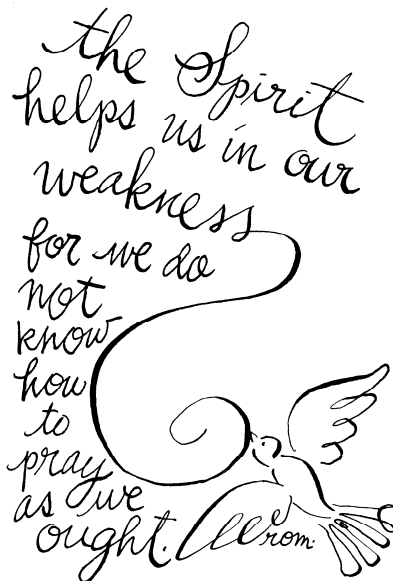 the Spirit
helps us in our
weakness
for we do
not
know
how
to
pray
as we
ought.
rom.